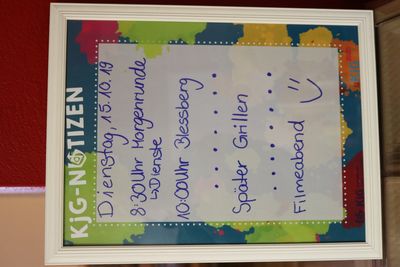 KjG-NOTIZEN
Dienstag, 15.10.19
8:30Uhr Morgenrunde
↳Dienste
10:00Uhr Blessberg
Später Grillen
Filmeabend :)